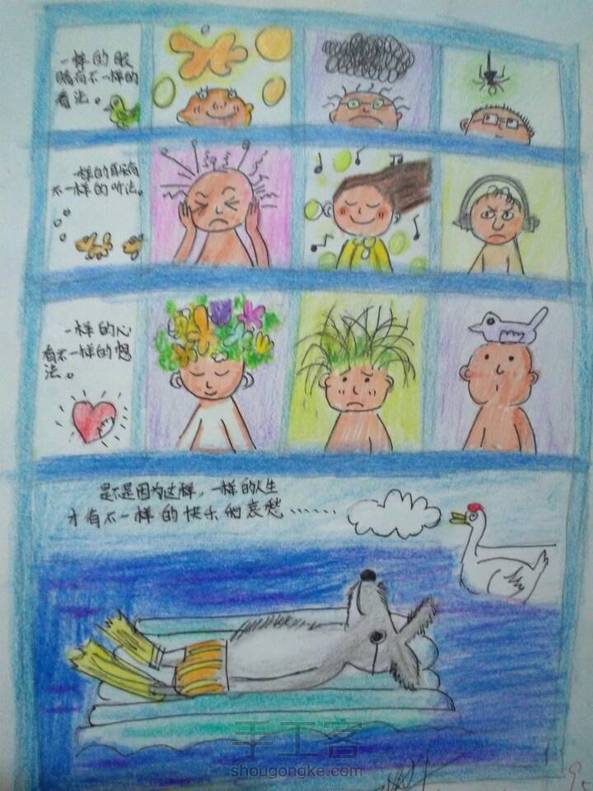 一样的眼
睛有不一样的
看法。
一样的耳朵有
不一样的听法。
一样的心
有不一样的想
法。
是不是因为这样，一样的人生
才有不一样的快乐和哀愁……
手工客
shougongke.com